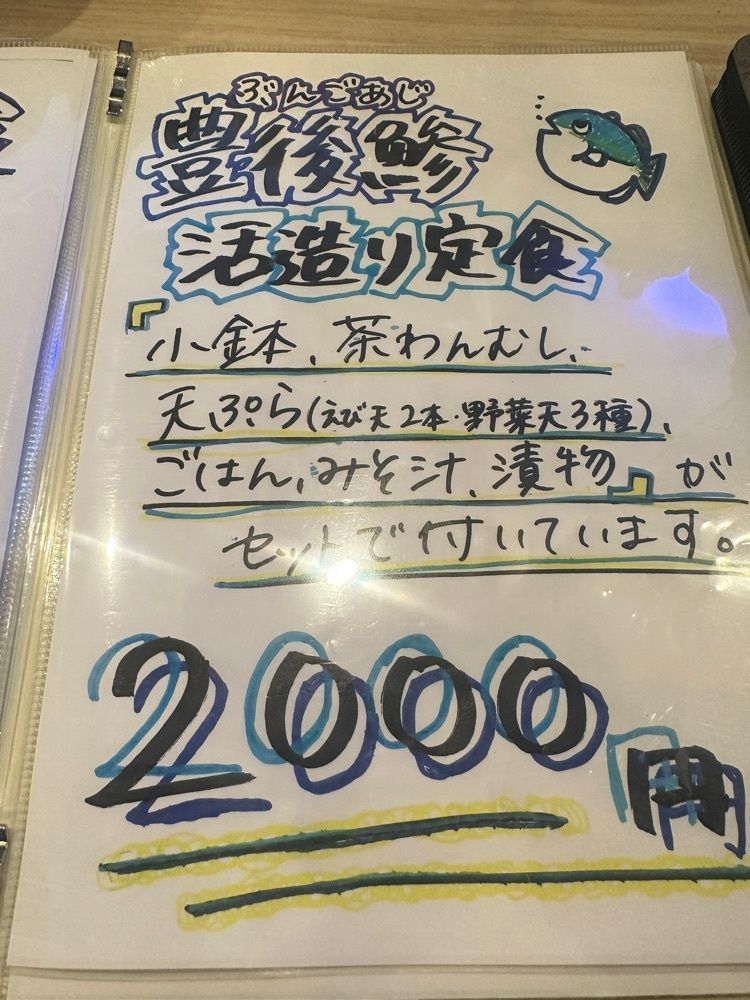 ぶんごあじ
豊後鯵
活造り定食
『小鉢、茶わんむし、
天ぷら(えび天2本・野菜天3種)、
ごはん、みそ汁、漬物』が
セットで付いています。
2000円